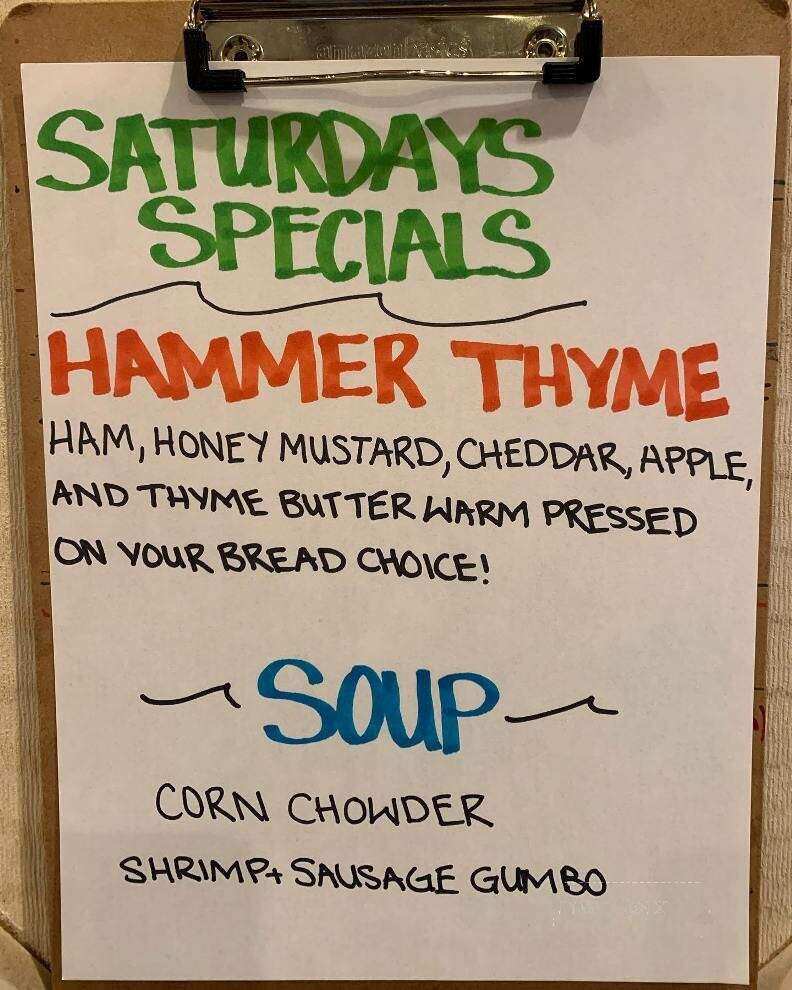 amazonbasics
SATURDAYS
SPECIALS
HAMMER THYME
HAM, HONEY MUSTARD, CHEDDAR, APPLE,
AND THYME BUTTER WARM PRESSED
ON YOUR BREAD CHOICE!
SOUP
CORN CHOWDER
SHRIMP+ SAUSAGE GUMBO